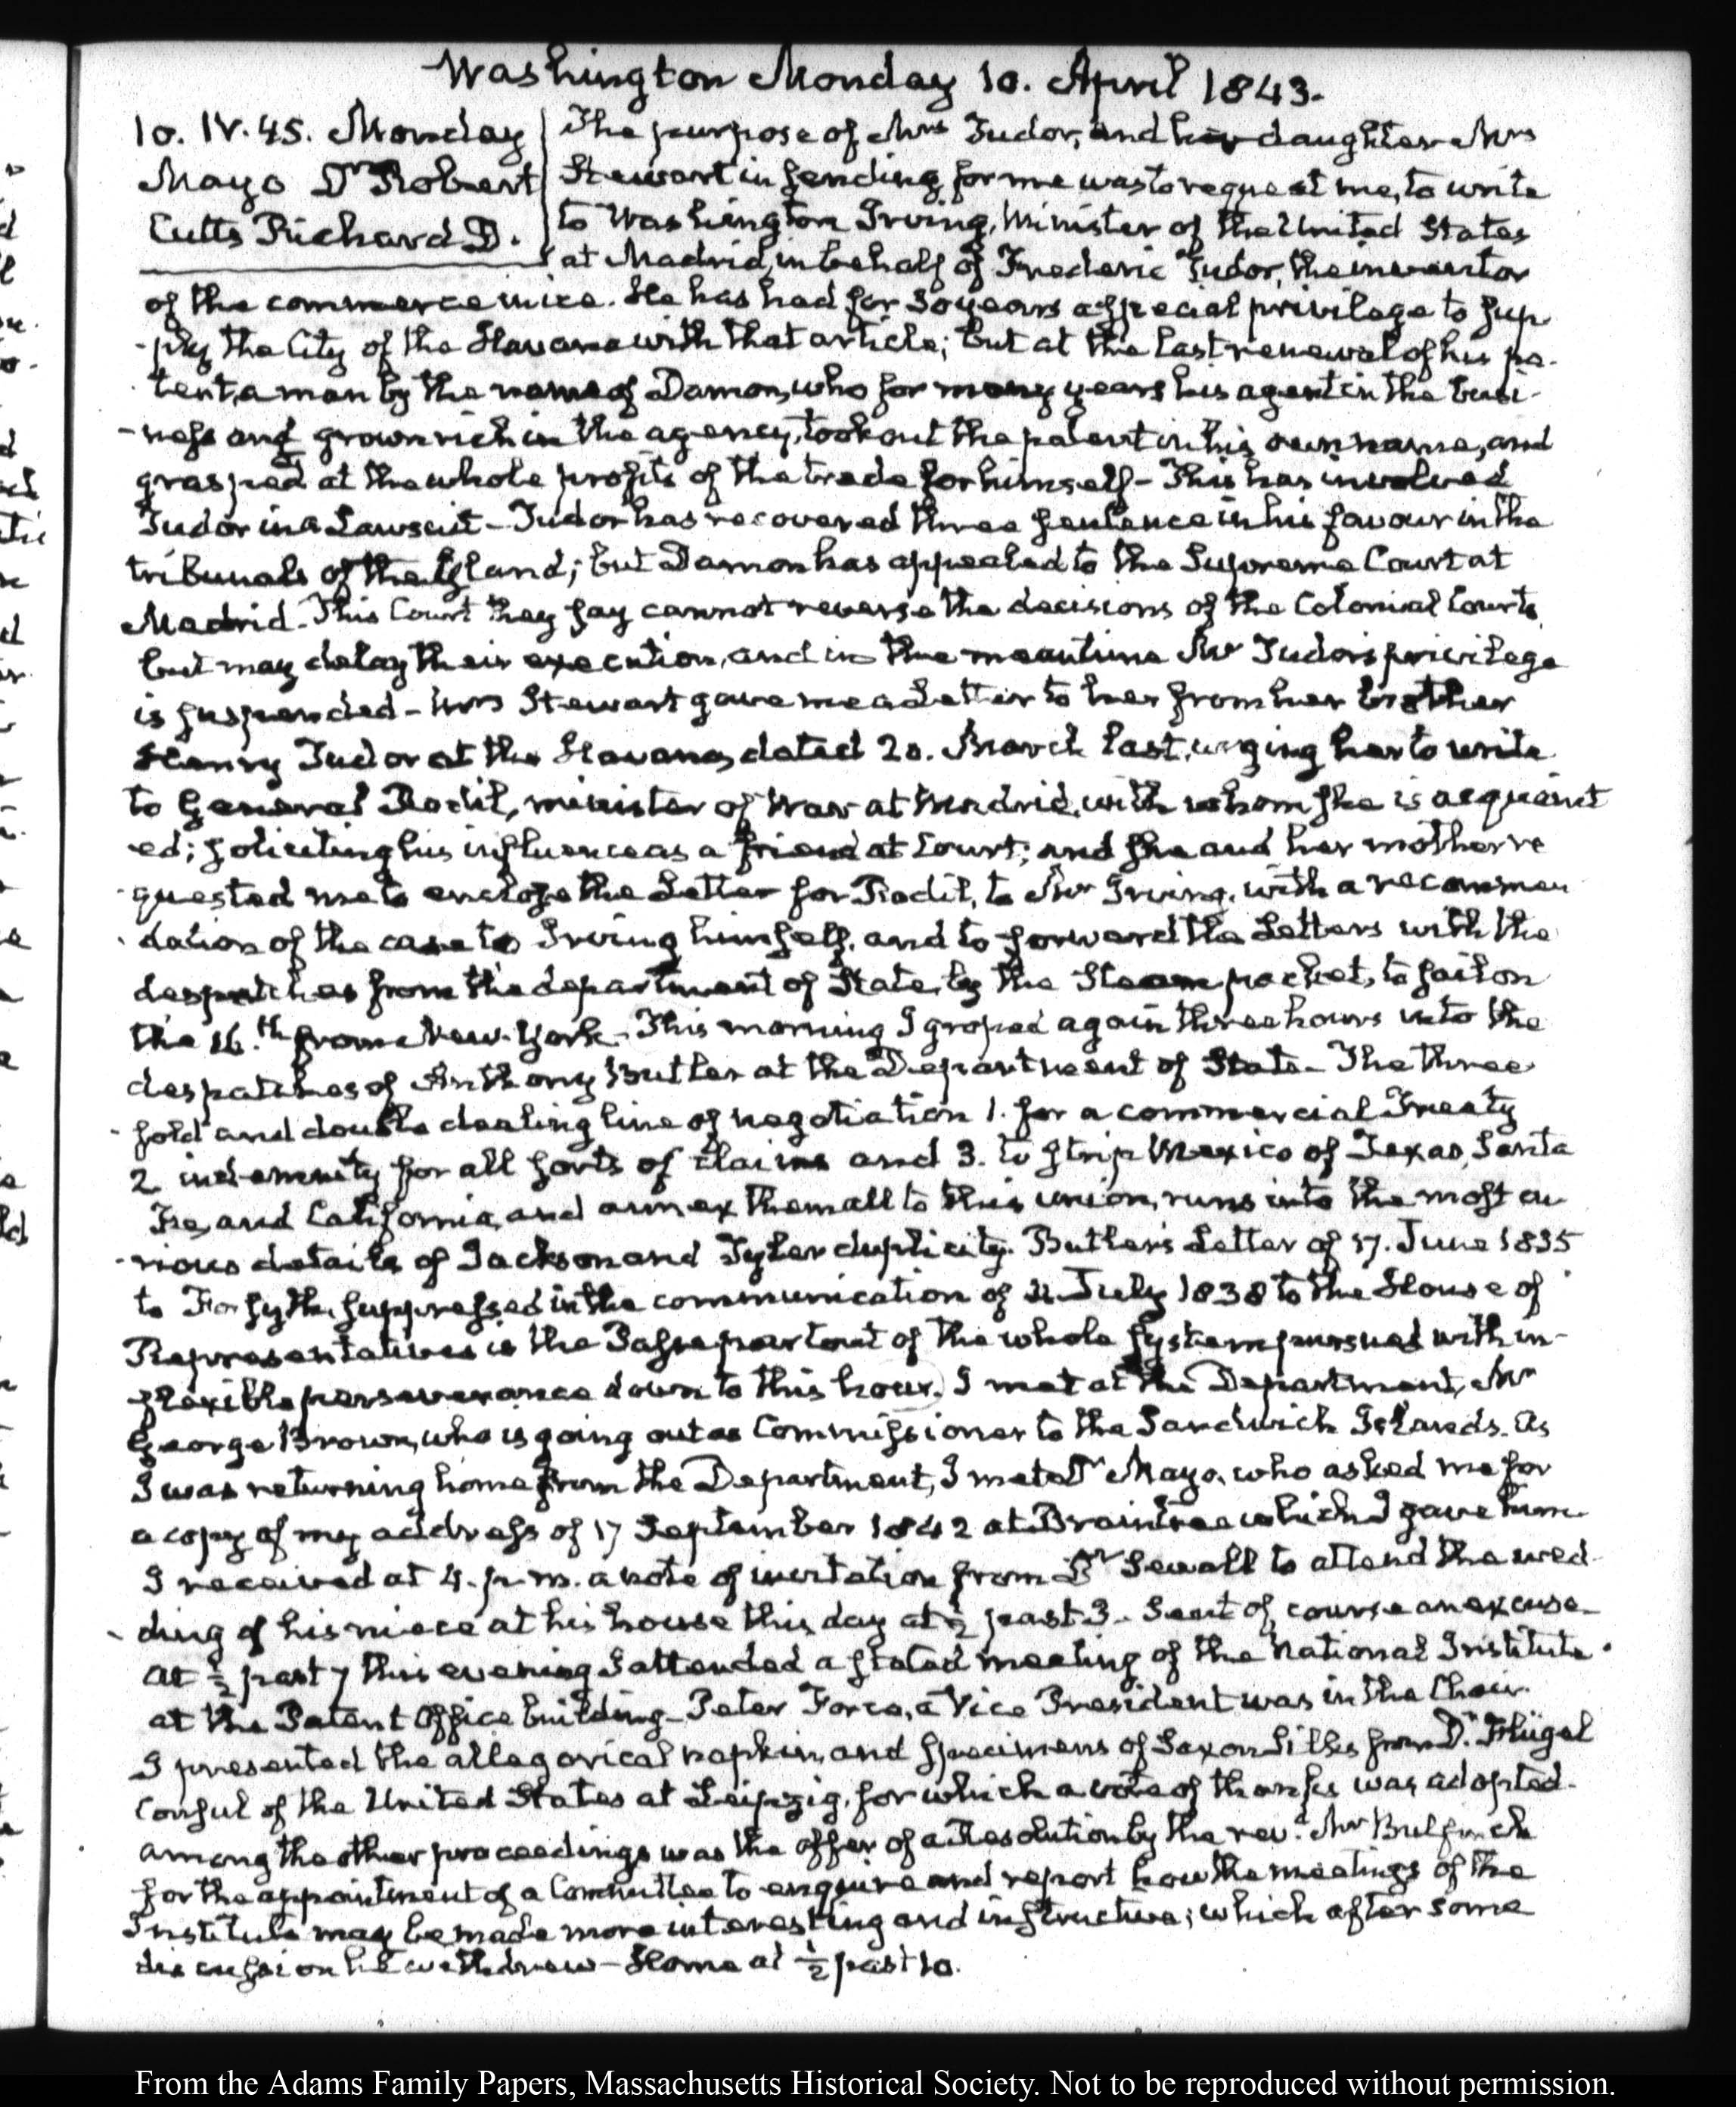 Washington Monday 10. April 1843.
10. IV. 45. Monday
Mayo Dr Robert
Cutts Richard D.
The purpose of Mrs Tudor, and her daughter Mrs
Stewart in sending for me was to request me, to write
to Washington Irving, Minister of the United States
at Madrid, in behalf of Frederic Tudor, the inventor
of the commerce in ice. He has had for 30 years a special privilege to sup
-ply the City of the Havana with that article; but at the last renewal of his pa-
tent, a man by the name of Damon, who for many years his agent in the busi-
-ness and grown rich in the agency, took out the patent in his own name, and
grasped at the whole profits of the trade for himself - This has involved
Tudor in a Lawsuit - Tudor has recovered three sentence in his favour in the
tribunals of the Island; but Damon has appealed to the Supreme Court at
Madrid - This Court they say cannot reverse the decisions of the Colonial Courts
but may delay their execution, and in the meantime Mr Tudor's privilege
is suspended - Mrs Stewart gave me a Letter to her from her brother
Henry Tudor at the Havana, dated 20. March last, urging her to write
to General Rodil, minister of War at Madrid, with whom she is acquaint
ed; soliciting his influence as a friend at Court; and she and her mother re
quested me to enclose the Letter for Rodil, to Mr Irving, with a recommen
dation of the case to Irving himself, and to forward the Letters with the
despatches from the department of State, by the Steam packet, to sail on
the 16.th from New-York - This morning I groped again three hours into the
despatches of Anthony Butler at the Department of State - The three
fold and double dealing line of negotiation 1. for a commercial Treaty
2 indemnity for all sorts of claims and 3. to strip Mexico of Texas, Santa
Fe, and California, and annex them all to this union, runs into the most cu
-rious details of Jackson and Tyler duplicity. Butler's Letter of 17. June 1835
to Forsyth, suppressed in the communication of July 1838 to the House of
Representatives is the Passepartout of the whole system pursued with in-
flexible perseverance down to this hour. I met at the Department, Mr
George Brown, who is going out as Commissioner to the Sandwich Islands. As
I was returning home from the Department, I met Dr Mayo, who asked me for
a copy of my address of 17 September 1842 at Braintree which I gave him.
I received at 4. p.m. a note of invitation from Dr Sewall to attend the wed-
ding of his niece at his house this day at ½ past 3 - Sent of course an excuse -
At ½ past 7 this evening I attended a stated meeting of the National Institute
at the Patent Office building - Peter Force, a Vice President was in the Chair.
I presented the allegorical napkin, and specimens of Saxon silks from Dr. Flügel
Consul of the United States at Leipzig, for which a vote of thanks was adopted -
among the other proceedings was the offer of a Resolution by the rev.d Mr Bulfinch
for the appointment of a Committee to enquire and report how the meetings of the
Institute may be made more interesting and instructive; which after some
discussion he withdrew - Home at ½ past 10.
From the Adams Family Papers, Massachusetts Historical Society. Not to be reproduced without permission.